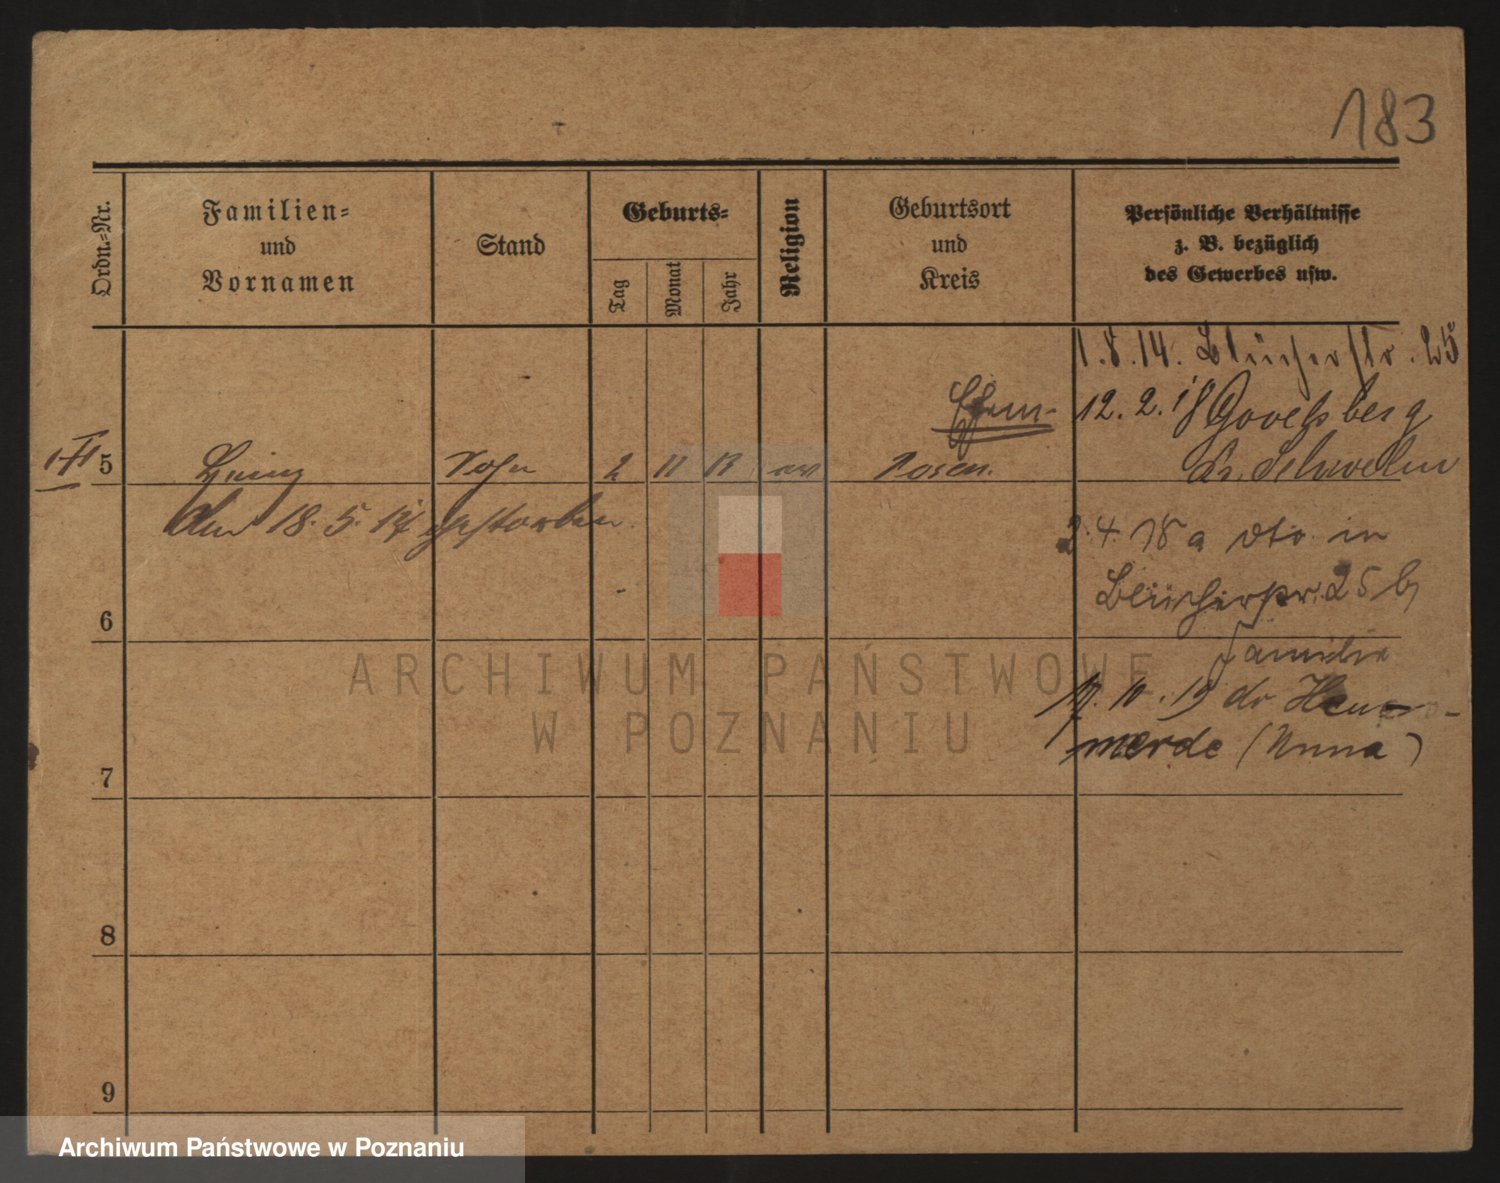 183
Ordn.-Nr.
Familien-
und
Vornamen
Stand
Geburts-
Tag
Monat
Jahr
Religion
Geburtsort
und
Kreis
Persönliche Verhältnisse
z. B. bezüglich
des Gewerbes usw.
1.8.14. Blücherstr. 25
12.2.18 Gevelsberg
Kr. Schwelm
5 Heinz Sohn 2 11 13 ev Posen.
Am 18.5.14 gestorben.
2.4.18 a dto. in
Blücherstr. 25 b
Familie
6
17.10.19 do Hem-
merde (Unna)
7
8
9
ARCHIWUM PAŃSTWOWE
W POZNANIU
Archiwum Państwowe w Poznaniu